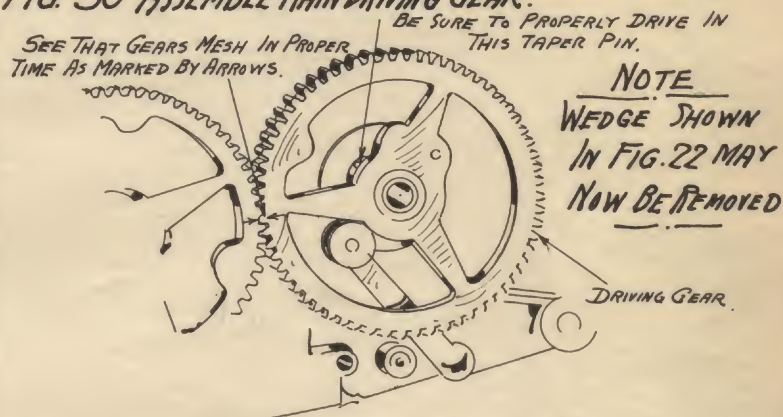 FIG. 30 ASSEMBLE MAIN DRIVING GEAR.
BE SURE TO PROPERLY DRIVE IN
THIS TAPER PIN.
SEE THAT GEARS MESH IN PROPER
TIME AS MARKED BY ARROWS.
NOTE
WEDGE SHOWN
IN FIG. 22 MAY
NOW BE REMOVED
C
DRIVING GEAR